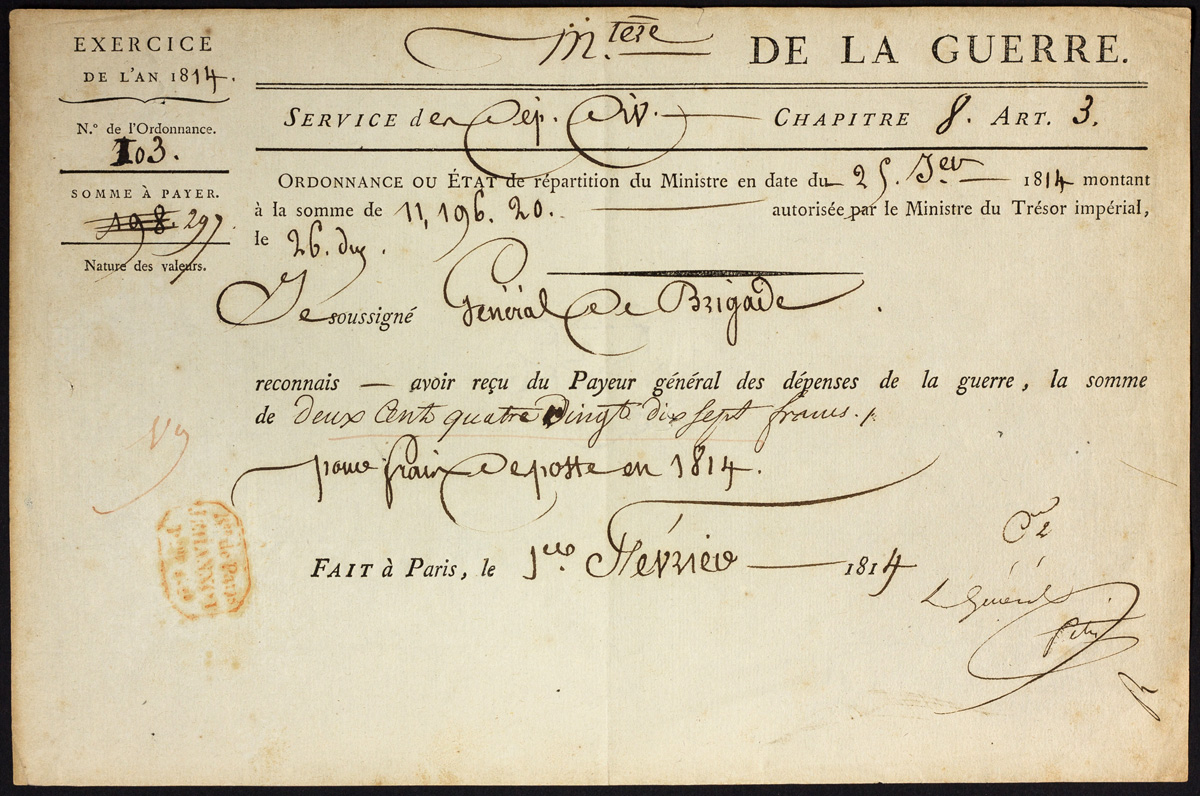 EXERCICE
DE L'AN 1814.
N.º de l'Ordonnance.
103.
SOMME À PAYER.
198. 297
Nature des valeurs.
M.tere DE LA GUERRE.
SERVICE des Dép. Div. CHAPITRE 8. ART. 3.
ORDONNANCE OU ÉTAT de répartition du Ministre en date du 25. Jer 1814 montant
à la somme de 11,196.20. autorisée par le Ministre du Trésor impérial,
le 26. du .
Je soussigné Général De Brigade .
reconnais — avoir reçu du Payeur général des dépenses de la guerre, la somme
de deux Cents quatre Vingt dix sept francs.
pour frais De poste en 1814.
FAIT à Paris, le 1er. Février 1814
Le Général
Petit